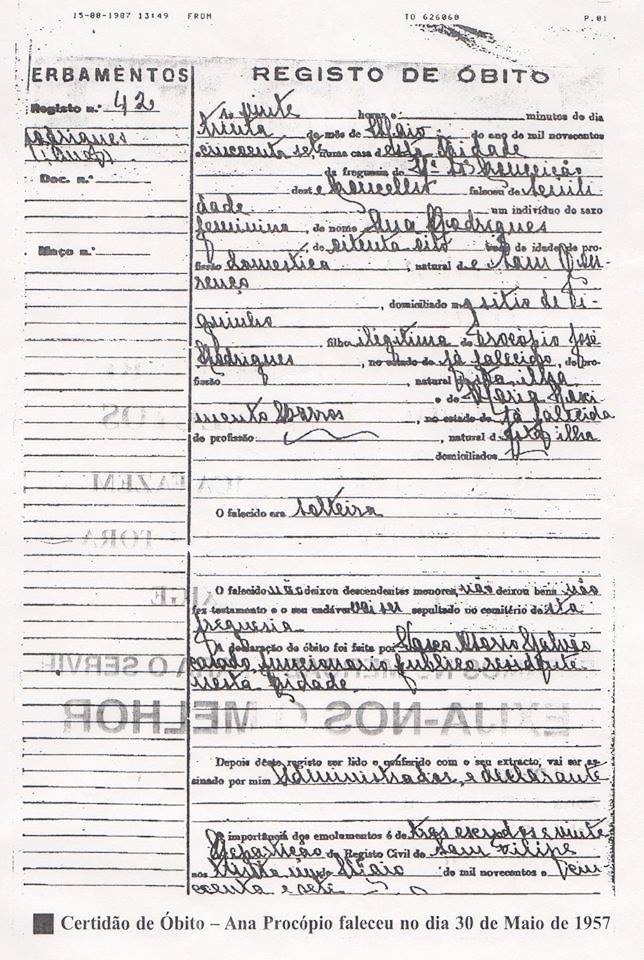 15-08-1987 13:49 FROM TO 626060 P.01
ERBAMENTOS
REGISTO DE ÓBITO
Registo n.º 42
Rodrigues
Doc. n.º
Maço n.º
Às vinte horas e minutos do dia
trinta do mês de Maio do ano de mil novecentos
e cincoenta sete, numa casa desta cidade
da freguesia de Nª Sª Conceição
deste concelho faleceu de senili
dade um indivíduo do sexo
feminino, de nome Ana Rodrigues
de oitenta oito anos de idade, de pro-
fissão domestica, natural de Sam Lou-
renço
, domiciliado no sitio de Pi-
quinho
filha ilegitima de Procopio José
Rodrigues, no estado de já falecido, de pro-
fissão natural desta ilha
e de Maria Nasci
mento Barros, no estado de já falecida
de profissão, natural desta ilha
domiciliados
O falecido era solteira
O falecido não deixou descendentes menores, não deixou bens não
fez testamento e o seu cadáver vai ser sepultado no cemitério desta
freguesia
A declaração do óbito foi feita por Vasco Mario Galvão
casado, funcionario publico residente
nesta cidade
Depois dêste registo ser lido e conferido com o seu extracto, vai ser as-
sinado por mim Administrador, e declarante
A importância dos emolumentos é de tres escudos e vinte
Repartição do Registo Civil de Sam Filipe
aos trinta um de Maio de mil novecentos e cin
coenta e sete
Certidão de Óbito – Ana Procópio faleceu no dia 30 de Maio de 1957